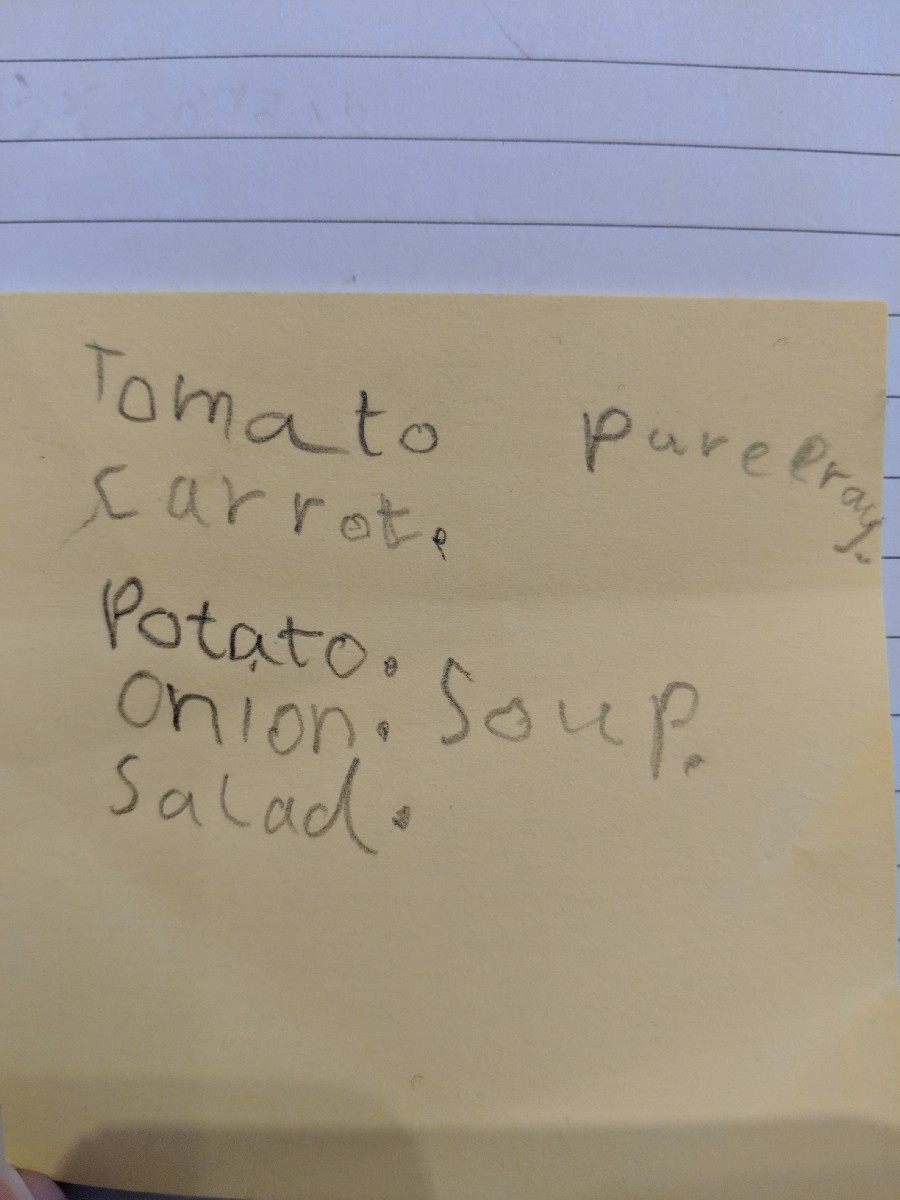 Tomato pureeray.
Carrot.
Potato.
Onion. Soup.
Salad.